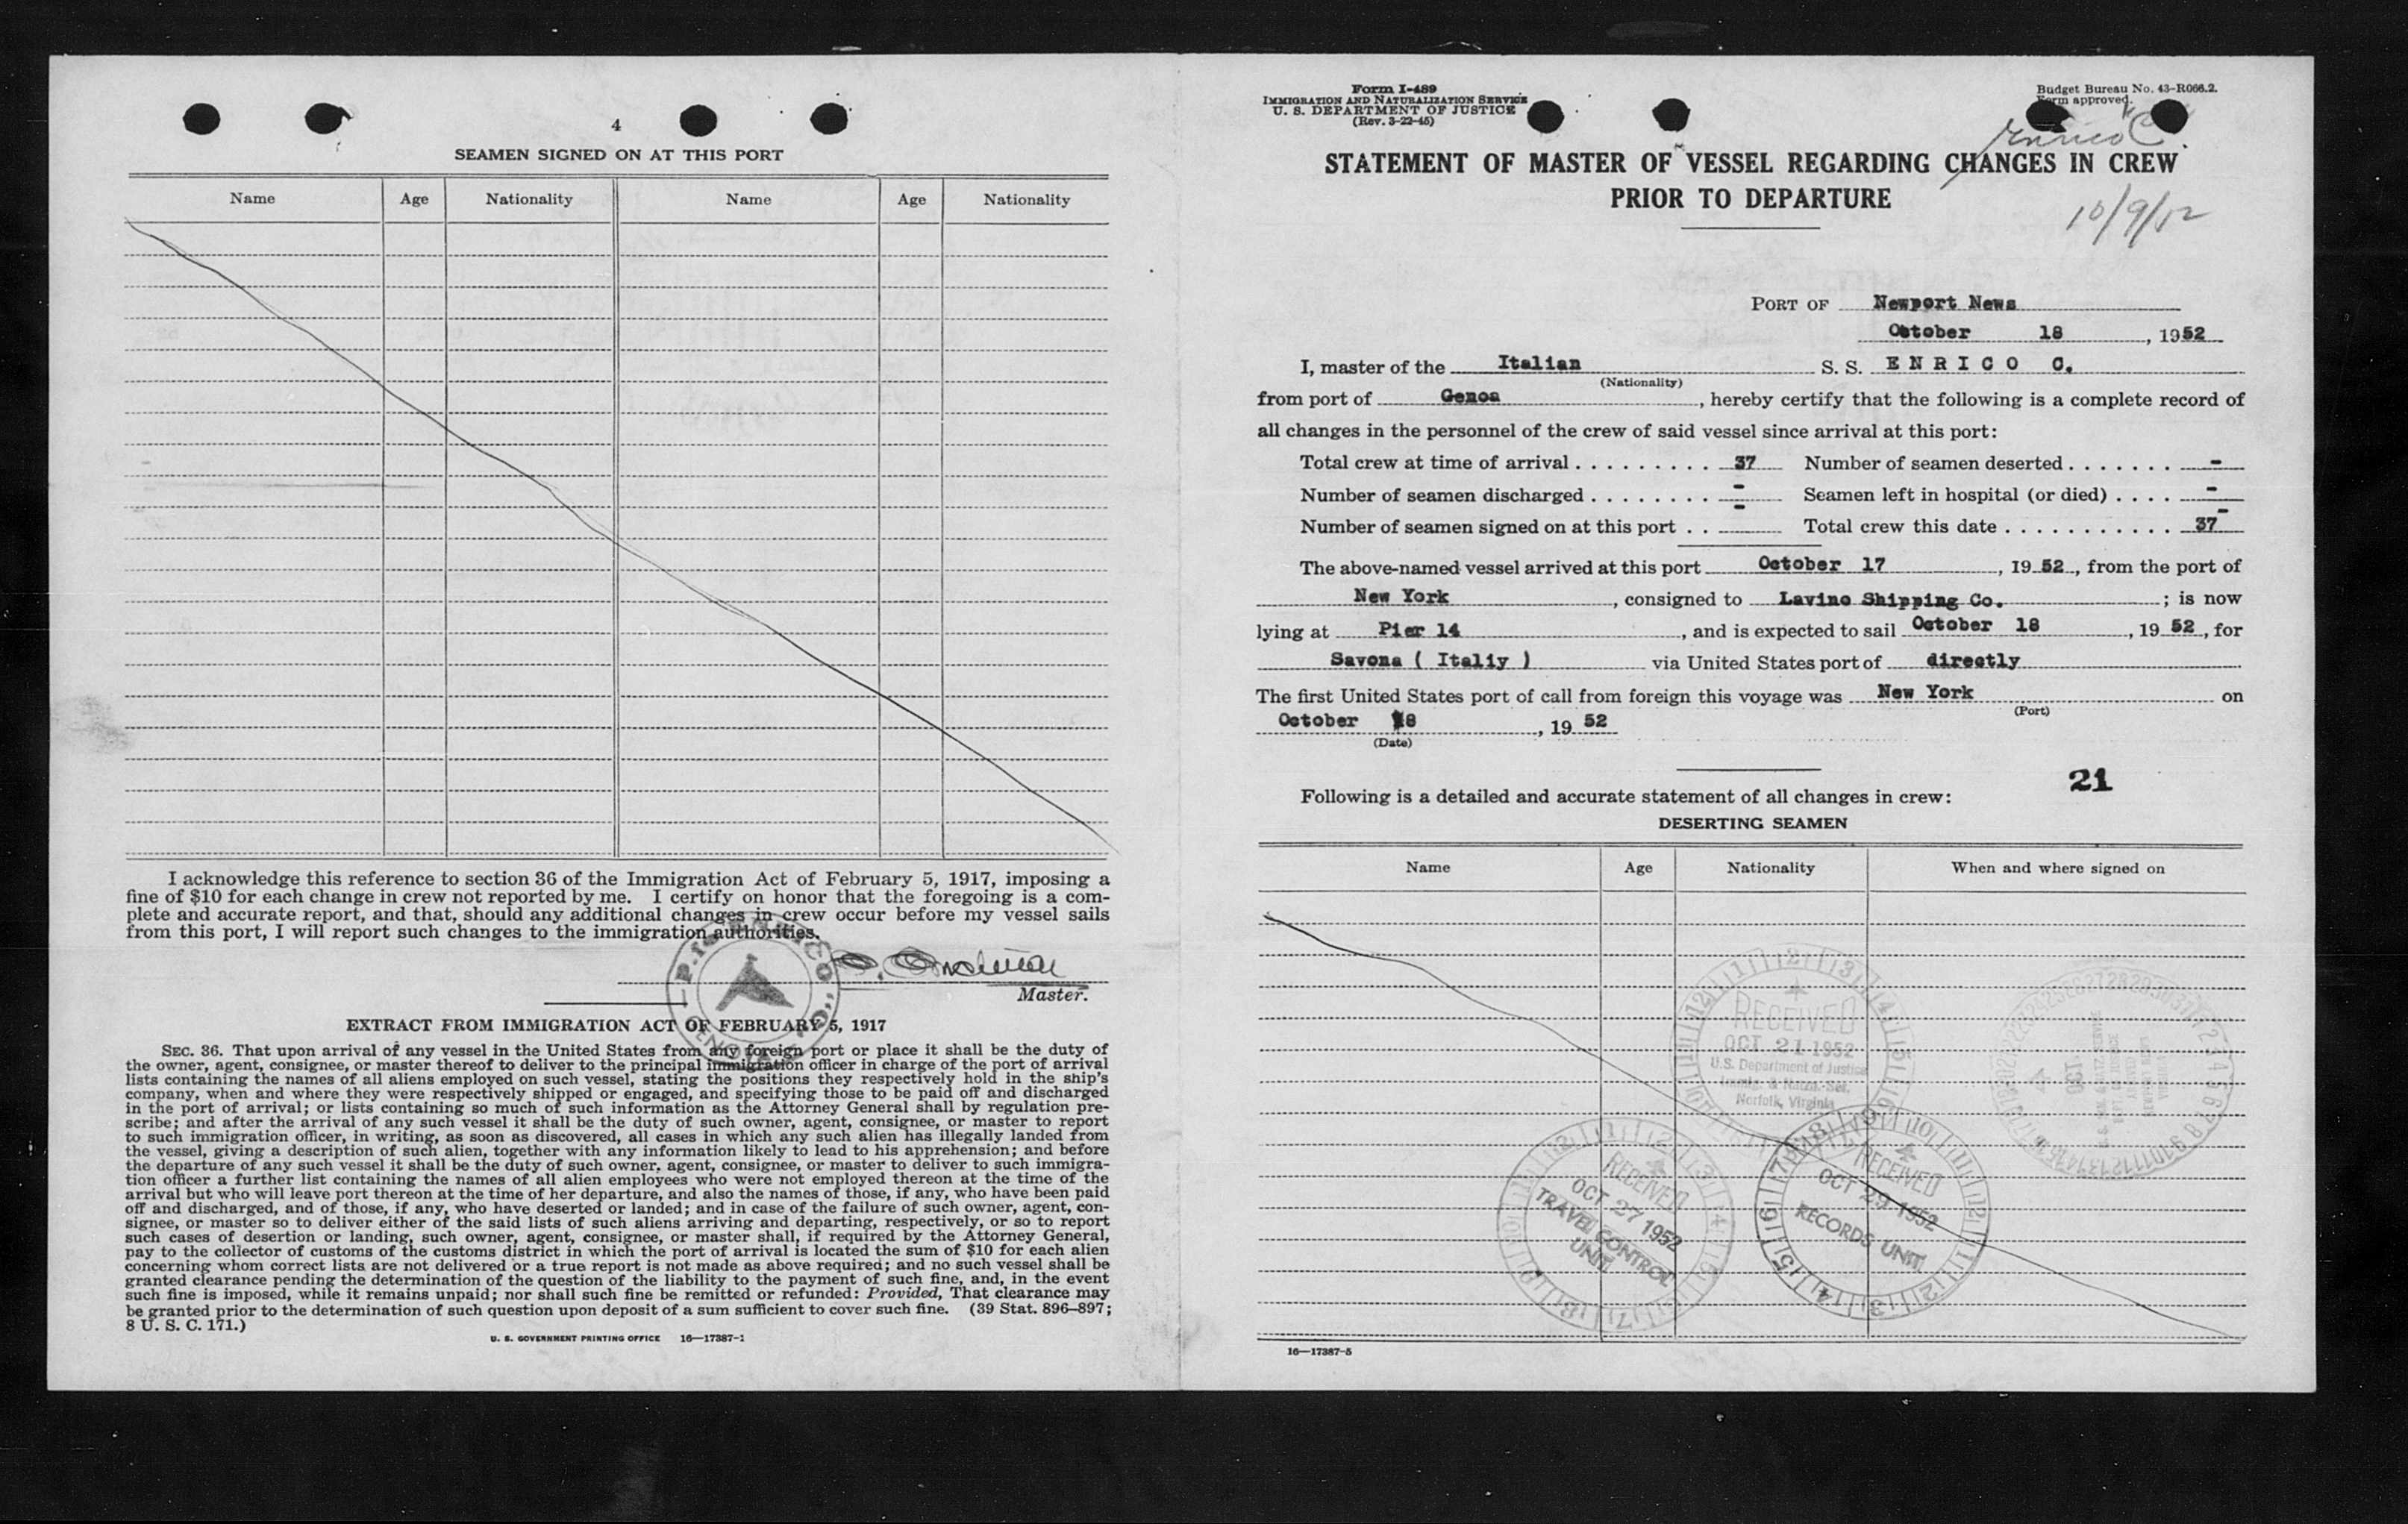 4
SEAMEN SIGNED ON AT THIS PORT
Name Age Nationality Name Age Nationality
I acknowledge this reference to section 36 of the Immigration Act of February 5, 1917, imposing a
fine of $10 for each change in crew not reported by me. I certify on honor that the foregoing is a com-
plete and accurate report, and that, should any additional changes in crew occur before my vessel sails
from this port, I will report such changes to the immigration authorities.
Master.
EXTRACT FROM IMMIGRATION ACT OF FEBRUARY 5, 1917
SEC. 36. That upon arrival of any vessel in the United States from any foreign port or place it shall be the duty of
the owner, agent, consignee, or master thereof to deliver to the principal immigration officer in charge of the port of arrival
lists containing the names of all aliens employed on such vessel, stating the positions they respectively hold in the ship's
company, when and where they were respectively shipped or engaged, and specifying those to be paid off and discharged
in the port of arrival; or lists containing so much of such information as the Attorney General shall by regulation pre-
scribe; and after the arrival of any such vessel it shall be the duty of such owner, agent, consignee, or master to report
to such immigration officer, in writing, as soon as discovered, all cases in which any such alien has illegally landed from
the vessel, giving a description of such alien, together with any information likely to lead to his apprehension; and before
the departure of any such vessel it shall be the duty of such owner, agent, consignee, or master to deliver to such immigra-
tion officer a further list containing the names of all alien employees who were not employed thereon at the time of the
arrival but who will leave port thereon at the time of her departure, and also the names of those, if any, who have been paid
off and discharged, and of those, if any, who have deserted or landed; and in case of the failure of such owner, agent, con-
signee, or master so to deliver either of the said lists of such aliens arriving and departing, respectively, or so to report
such cases of desertion or landing, such owner, agent, consignee, or master shall, if required by the Attorney General,
pay to the collector of customs of the customs district in which the port of arrival is located the sum of $10 for each alien
concerning whom correct lists are not delivered or a true report is not made as above required; and no such vessel shall be
granted clearance pending the determination of the question of the liability to the payment of such fine, and, in the event
such fine is imposed, while it remains unpaid; nor shall such fine be remitted or refunded: Provided, That clearance may
be granted prior to the determination of such question upon deposit of a sum sufficient to cover such fine. (39 Stat. 896–897;
8 U. S. C. 171.)
U. S. GOVERNMENT PRINTING OFFICE 16—17387-1
Form I-489
IMMIGRATION AND NATURALIZATION SERVICE
U. S. DEPARTMENT OF JUSTICE
(Rev. 3-22-45)
Budget Bureau No. 43-R066.2.
Form approved.
Enrico C
STATEMENT OF MASTER OF VESSEL REGARDING CHANGES IN CREW
PRIOR TO DEPARTURE
10/9/52
PORT OF Newport News
October 18, 1952
I, master of the Italian S. S. E N R I C O C.
(Nationality)
from port of Genoa, hereby certify that the following is a complete record of
all changes in the personnel of the crew of said vessel since arrival at this port:
Total crew at time of arrival . . . . . . . . . 37 Number of seamen deserted . . . . . . . -
Number of seamen discharged . . . . . . . . - Seamen left in hospital (or died) . . . . -
Number of seamen signed on at this port . . - Total crew this date . . . . . . . . . . . 37
The above-named vessel arrived at this port October 17, 19 52, from the port of
New York, consigned to Lavino Shipping Co. ; is now
lying at Pier 14, and is expected to sail October 18, 19 52, for
Savona ( Italiy ) via United States port of directly
The first United States port of call from foreign this voyage was New York on
(Port)
October 8, 19 52
(Date)
21
Following is a detailed and accurate statement of all changes in crew:
DESERTING SEAMEN
Name Age Nationality When and where signed on
RECEIVED
OCT 21 1952
U.S. Department of Justice
Immig. & Natzn. Ser.
Norfolk, Virginia
RECEIVED
OCT 27 1952
TRAVEL CONTROL
UNIT
RECEIVED
OCT 29 1952
RECORDS UNIT
16—17387-5